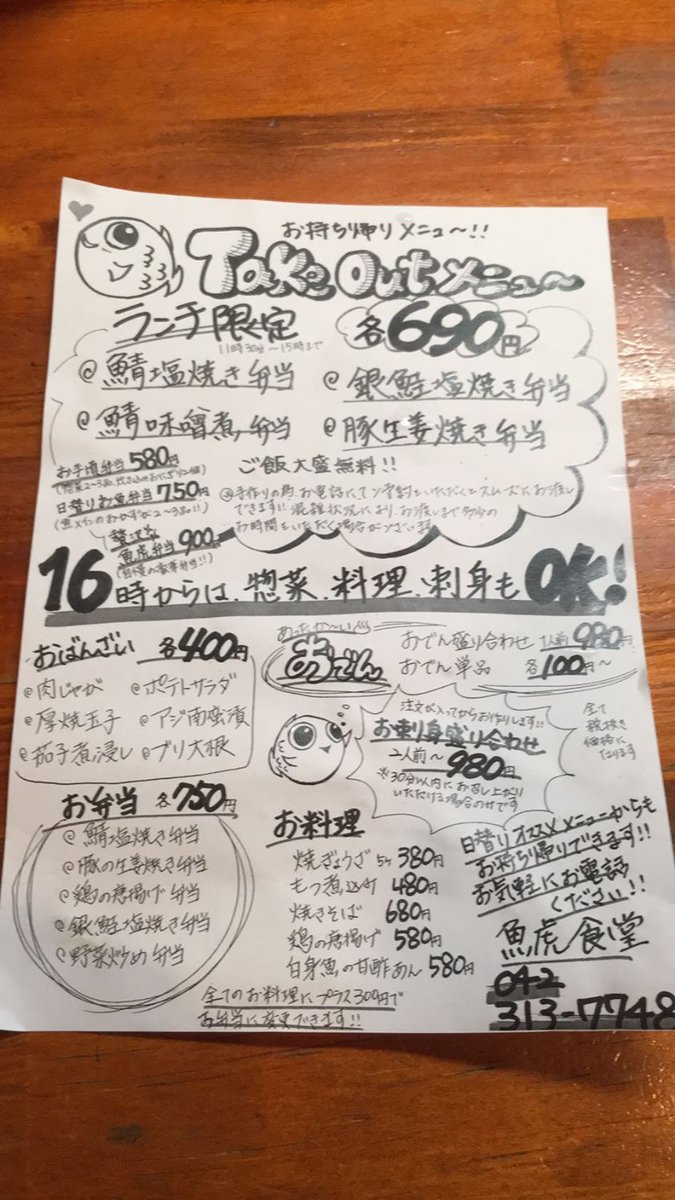 お持ち帰りメニュ〜!!
Take Out メニュ〜
ランチ限定
11時30分〜15時まで
各690円
@鯖塩焼き弁当
@銀鮭塩焼き弁当
@鯖味噌煮弁当
@豚生姜焼き弁当
お手頃弁当 580円
日替りお魚弁当 750円
(魚メインのおかずが2〜3品!!)
贅沢な
魚虎弁当 900円
(自慢の豪華弁当!!)
ご飯大盛無料!!
※手作りの為お電話にてご予約をいただくとスムーズにお渡し
できます!!混雑状況により、お渡しまで多少の
お時間をいただく場合がございます
16時からは、惣菜、料理、刺身もOK!
おばんざい 各400円
@肉じゃが @ポテトサラダ
@厚焼玉子 @アジ南蛮漬
@茄子煮浸し @ブリ大根
あったか〜い
おでん
おでん盛り合わせ 1人前 980円
おでん単品 各100円〜
注文が入ってからお作りします!!
お刺身盛り合わせ
2人前〜 980円
※30分以内にお召し上がり
いただける場合のみです
全て
税抜き
価格に
なります
お弁当 各750円
@鯖塩焼き弁当
@豚の生姜焼き弁当
@鶏の唐揚げ弁当
@銀鮭塩焼き弁当
@野菜炒め弁当
お料理
焼きぎょうざ 5ヶ 380円
もつ煮込み 480円
焼きそば 680円
鶏の唐揚げ 580円
白身魚の甘酢あん 580円
全てのお料理にプラス300円で
お弁当に変更できます!!
日替りオススメメニューからも
お持ち帰りできます!!
お気軽にお電話
ください!!
魚虎食堂
042
313-7748